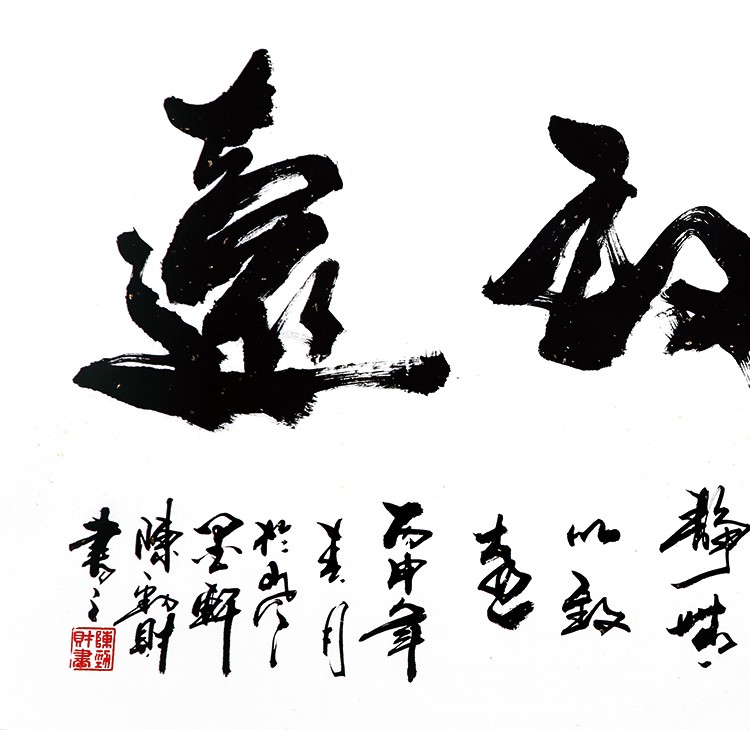 致遠
靜無
以致
遠
丙申年
春月
於
墨軒
陳勁財
書之
陳勁
財書